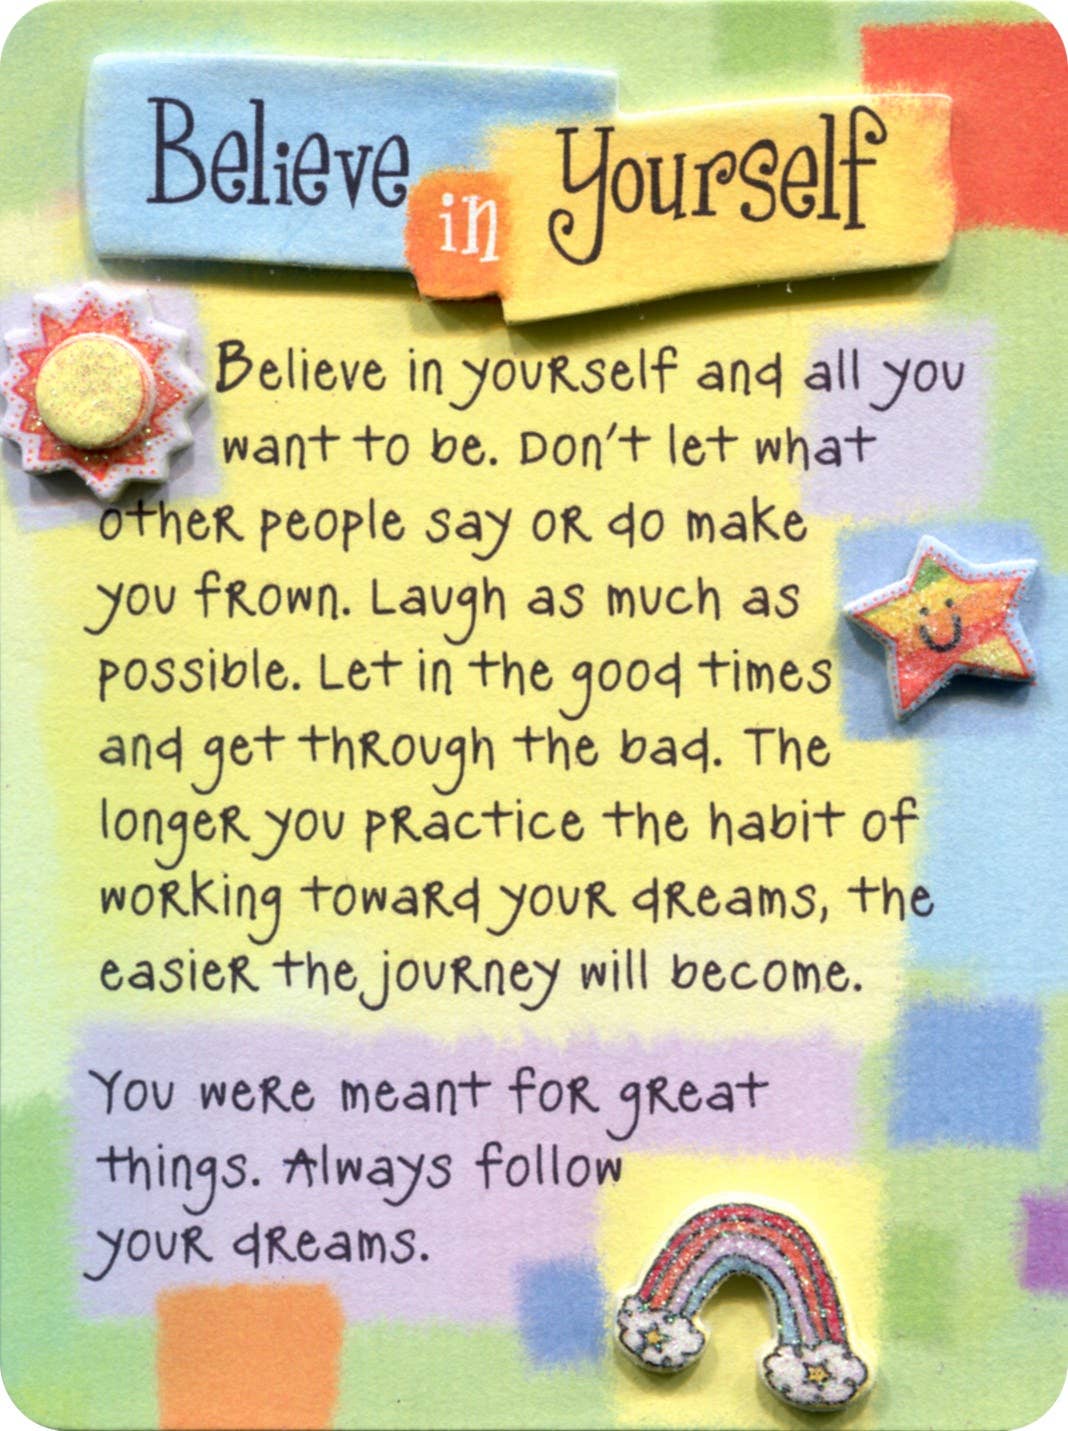 Believe in Yourself
Believe in yourself and all you
want to be. Don't let what
other people say or do make
you frown. Laugh as much as
possible. Let in the good times
and get through the bad. The
longer you practice the habit of
working toward your dreams, the
easier the journey will become.
You were meant for great
things. Always follow
your dreams.